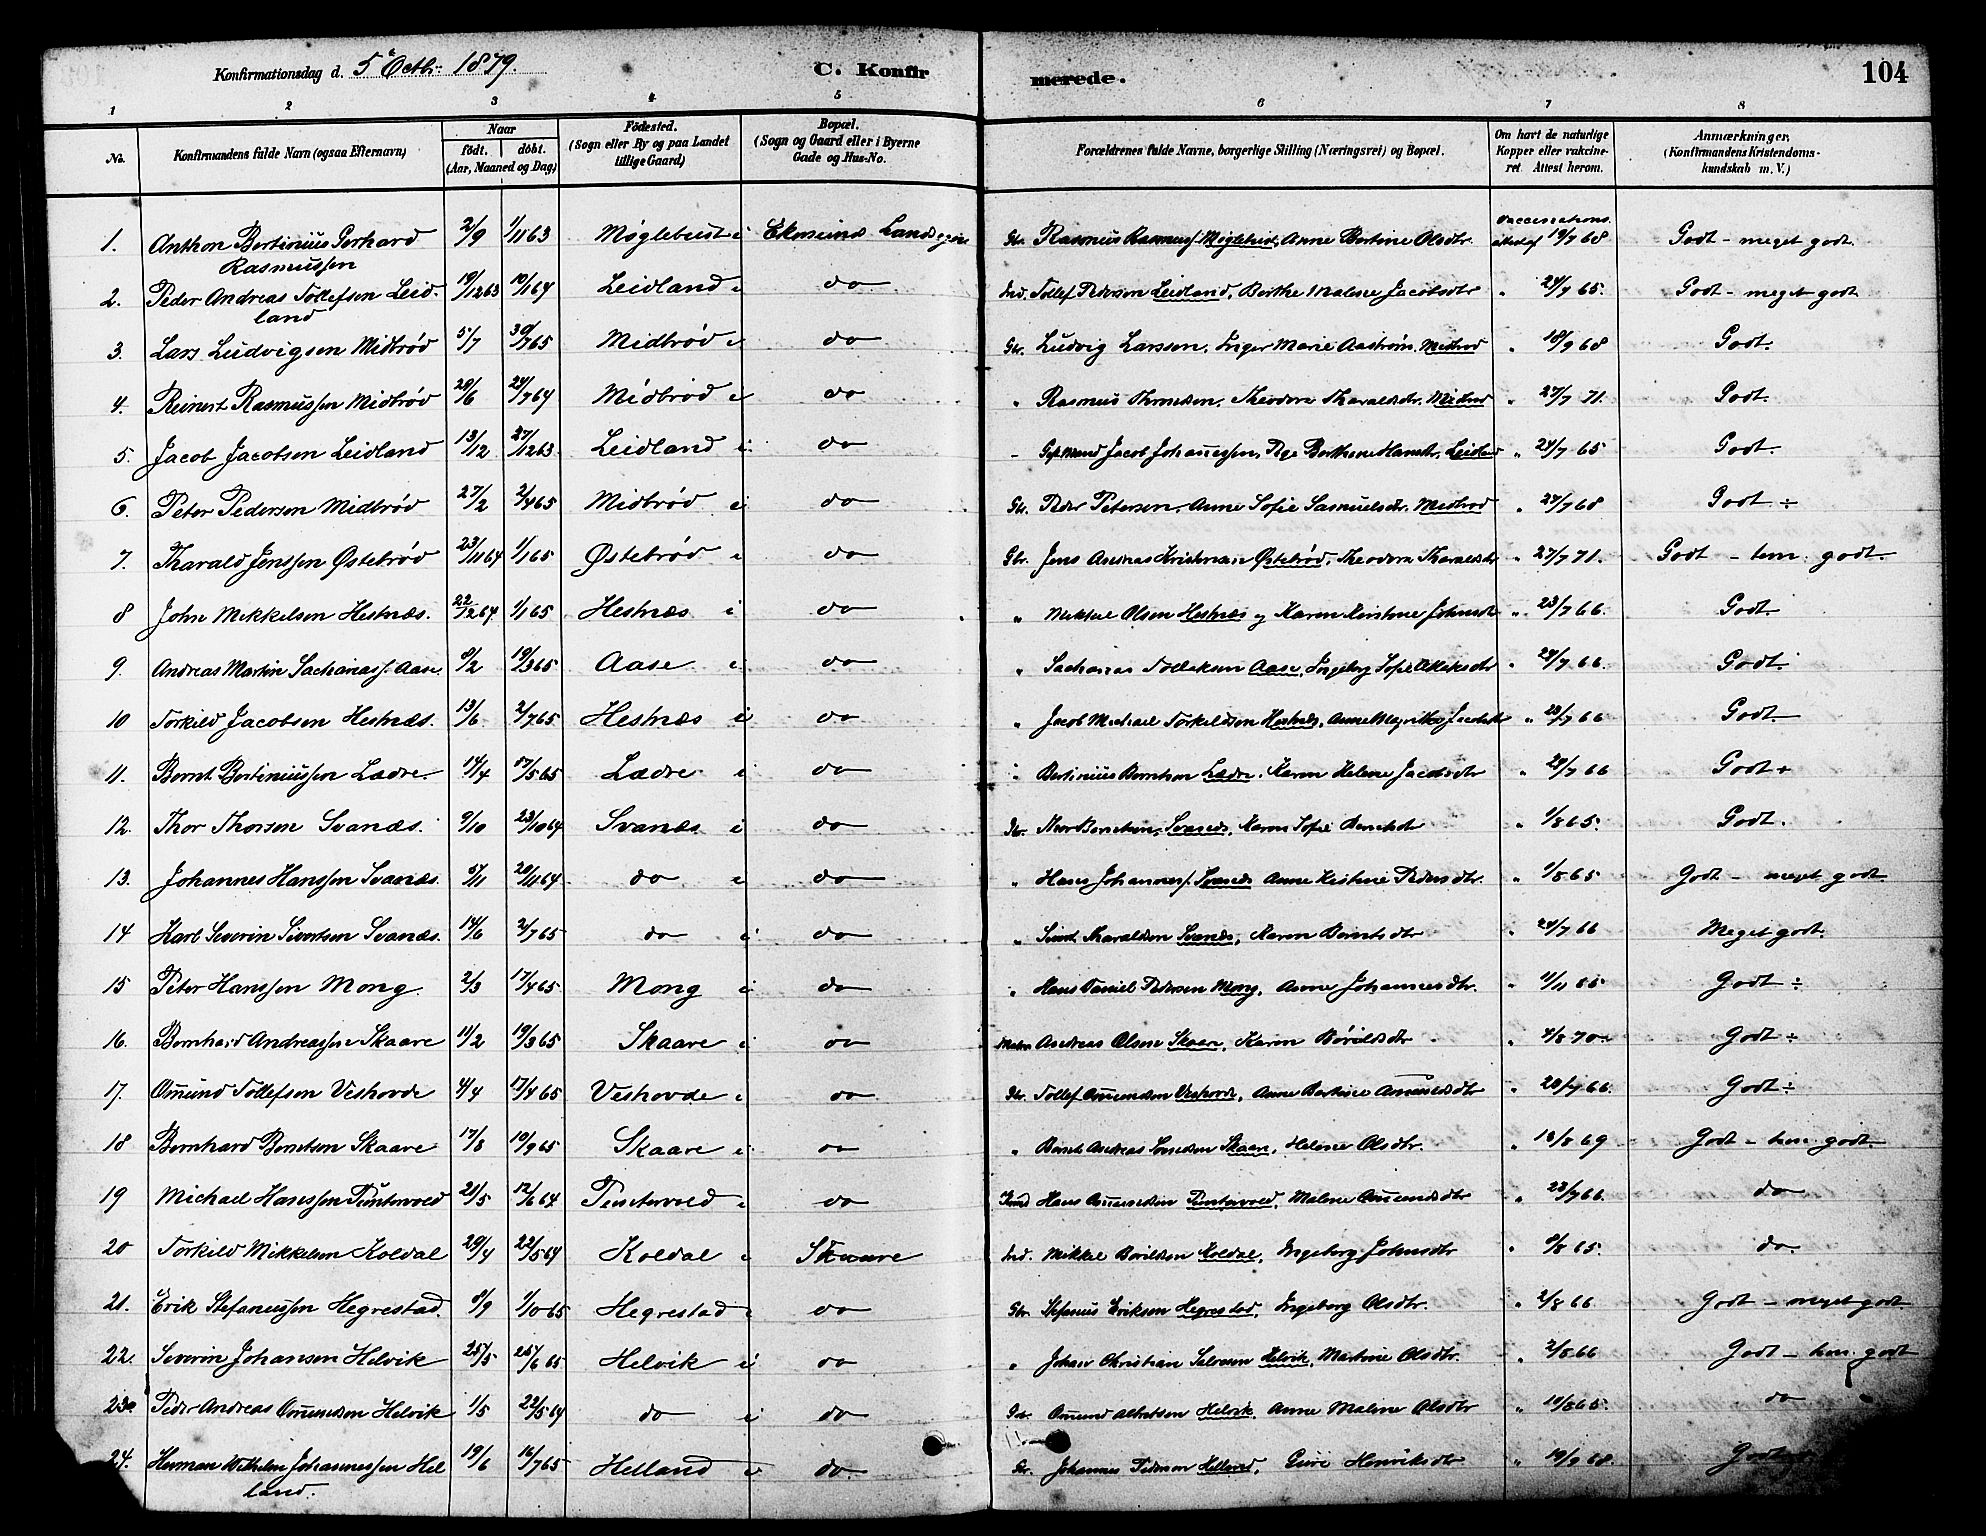 Konfirmationsdag d. 5 Octbr. 1879. C. Konfirmerede. 104
1 2 3 4 5 6 7 8
No. Konfirmandens fulde Navn (ogsaa Efternavn) Naar født. døbt. (Aar, Maaned og Dag) Fødested. (Sogn eller By og paa Landet tillige Gaard) Bopæl. (Sogn og Gaard eller i Byerne Gade og Hus-No. Forældrenes fulde Navne, borgerlige Stilling (Næringsvei) og Bopæl. Om havt de naturlige Kopper eller vakcineret. Attest herom. Anmærkninger, (Konfirmandens Kristendomskundskab m. V.)
1. Anthon Bertinius Gerhard Rasmussen 2/9 1/11 63 Møglebust i Ekersunds Landsogn Gbr. Rasmus Rasmuss. Møglebust, Anne Bertine Olsdtr. Vaccinationsattest af 19/7 68 Godt - meget godt.
2. Peder Andreas Tollefsen Leidland 19/12 63 10/1 64 Leidland i do Ind. Tollef Pedersen Leidland, Berthe Malene Jacobsdtr " 24/7 65. Godt - meget godt
3. Lars Ludvigsen Midbrød 5/7 30/7 65 Midbrød i do Gbr. Ludvig Larssen, Inger Marie Aastrøm. Midbrød " 18/9 68 Godt.
4. Reinert Rasmussen Midbrød 28/6 24/7 64 Midbrød i do " Rasmus Thomsen, Theodora Tharaldsdtr. Midbrød " 27/7 71. Godt.
5. Jacob Jacobsen Leidland 13/12 27/12 63 Leidland i do - Jacob Johannessen, Berthe Leidland " 24/7 65 Godt.
6. Peter Pedersen Midbrød 27/2 2/4 65 Midbrød i do Gbr. Peder Petersen, Anne Sofie Samuelsdtr. Midbrød " 27/7 68 Godt ÷
7. Tharald Jenssen Østebrød 23/11 64 1/1 65 Østebrød i do Gbr. Jens Andreas Kristensen Østebrød, Theodora Tharaldsdtr " 27/7 71. Godt - tem. godt.
8 John Mikkelsen Hestnæs. 22/12 64. 1/1 65 Hestnæs i do " Mikkel Olsen Hestnæs og Karen Kirstine Johnsdtr " 23/7 66. Godt.
9. Andreas Martin Sachariass. Aase 8/2 19/3 65 Aase i do " Sacharias Tolleksen Aase, Ingeborg Sofie " 24/7 66. Godt.
10 Torkild Jacobsen Hestnæs. 13/6 2/7 65 Hestnæs i do " Jacob Michael Torkildsen Hestnæs, Anne Jacobsdtr " 23/7 66 Godt.
11. Bernt Bertiniussen Lædre. 14/4 17/5 65 Lædre i do " Bertinius Berntsen Lædre. Karen Helene Jacobsdtr " 24/7 66 Godt +
12. Thor Thorsen Svanæs. 9/10 23/10 64 Svanæs i do Gbr. Thor Berntsen, Svanæs, Karen Sofie Berntsdtr " 1/8 65. Godt.
13. Johannes Hanssen Svanæs. 5/11 20/11 64 do i do " Hans Johanness. Svanæs Anne Kirstine Pedersdtr. " 1/8 65 Godt - meget godt.
14 Karl Severin Sivertsen Svanæs. 14/6 2/7 65 do i do " Sivert Tharaldsen Svanæs, Karen Berntsdtr " 24/7 66 Meget godt.
15 Peter Hanssen Mong. 2/3 17/4 65 Mong i do " Hans Daniel Pedersen Mong, Anne Johannesdtr. " 11/11 65 Godt ÷
16. Bernhard Andreassen Skaare 11/2 19/3 65 Skaare i do Andreas Olsen Skaare, Karen Børildsdtr " 4/8 70. Godt ÷
17. Omund Tollefsen Veshovde 4/4 17/4 65 Veshovde i do Gbr. Tollef Omundsen Veshovde, Anne Bertine Amundsdtr " 23/7 66. Godt ÷
18 Bernhard Berntsen Skaare 17/8 10/9 65 Skaare i do " Bernt Andreas Svendsen Skaare, Helene Olsdtr. " 13/8 69 Godt - tem. godt.
19 Michael Hanssen Puntervold 21/5 12/6 64 Puntervold i do Ind Hans Omundsen Puntervold, Malene Omundsdtr " 23/7 66. do
20 Torkild Mikkelsen Koldal 20/4 22/5 64 Koldal i Skaare Ind. Mikkel Børildsen Koldal, Ingeborg Johnsdtr " 1/8 65. do.
21. Erik Stefanussen Hegrestad. 8/9 1/10 65 Hegrestad i do Gbr. Stefanus Eriksen Hegrestad, Ingeborg Olsdtr. " 2/8 66 Godt - meget godt
22. Severin Johansen Helvik 25/5 25/6 65 Helvik i do " Johan Christian Salvesen Helvik, Martine Olsdtr. " 2/8 66 Godt - tem. godt
23. Peder Andreas Omundsen Helvik 1/5 22/5 64 do i do Gbr. Omund Albretsen Helvik, Anne Malene Olsdtr " 10/8 65. do
24. Herman Wilhelm Johannessen Helland. 19/6 16/7 65 Helland i do. Gbr. Johannes Pederson Helland, Guri Henriksdtr " 19/9 68. Godt